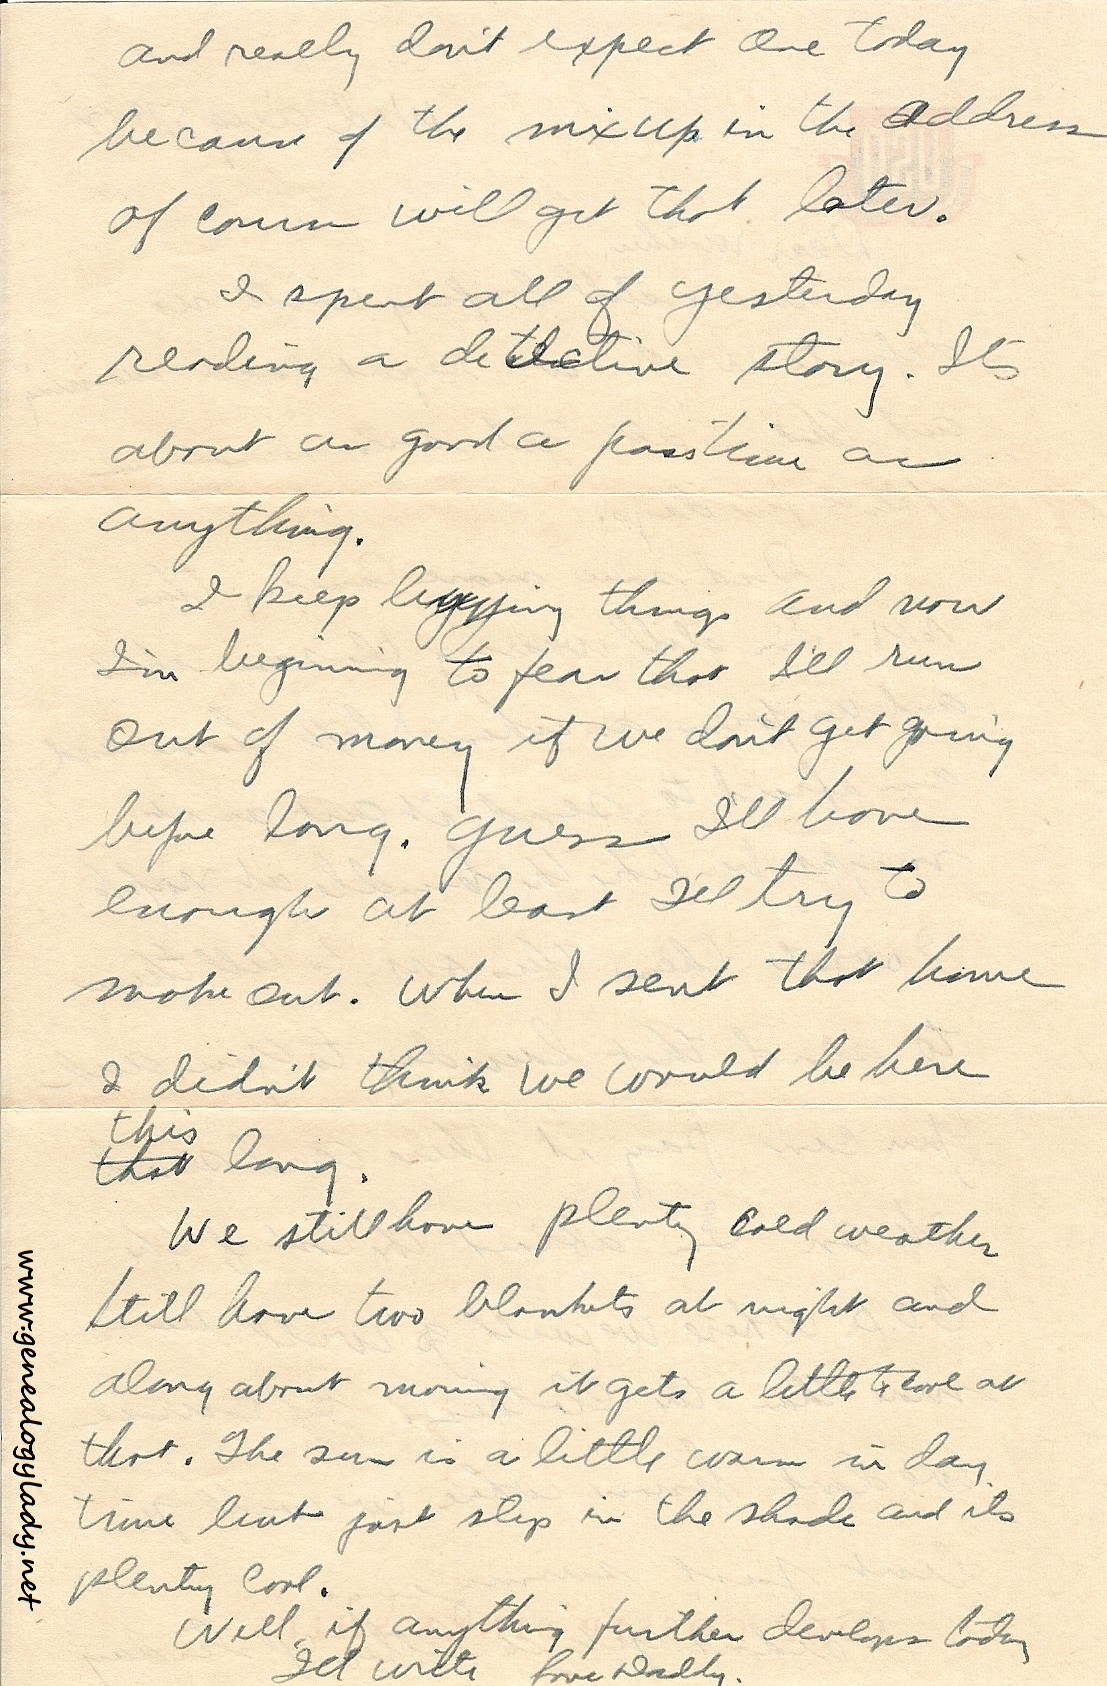 and really don't expect one today
because of the mixup in the address
of course will get that later.
I spent all of yesterday
reading a detective story. Its
about as good a passtime as
anything.
I keep buying things and now
I'm beginning to fear that I'll run
out of money if we don't get going
before long. Guess I'll have
enough at least I'll try to
make out. When I sent that home
I didn't think we would be here
this
that long.
We still have plenty cold weather
still have two blankets at night and
along about morning it gets a little cool at
that. The sun is a little warm in day
time but just step in the shade and its
plenty cool.
Well, if anything further develops today
I'll write Love Daddy.
www.genealogylady.net
USO